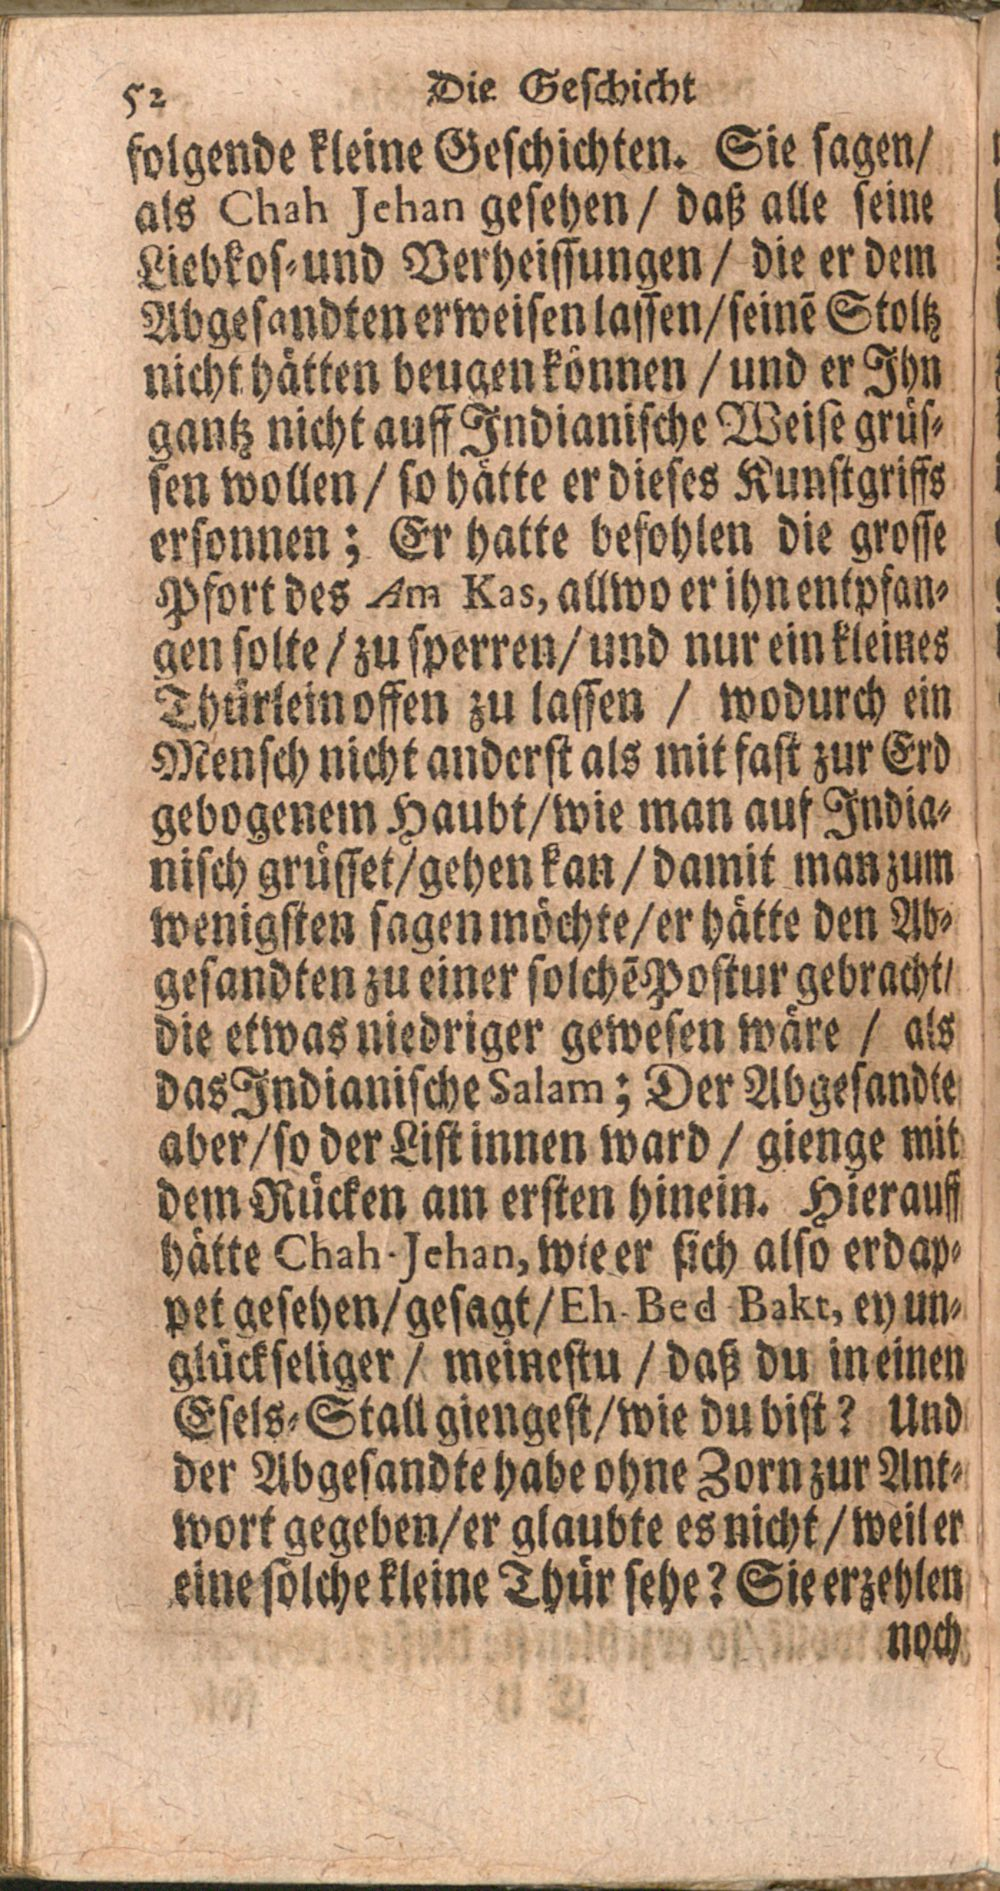 52 Die Geschicht
folgende kleine Geschichten. Sie sagen/
als Chah Jehan gesehen / daß alle seine
Liebkos-und Verheissungen / die er dem
Abgesandten erweisen lassen/seinē Stoltz
nicht hätten beugen können / und er Ihn
gantz nicht auff Indianische Weise grüs-
sen wollen / so hätte er dieses Kunstgriffs
ersonnen ; Er hatte befohlen die grosse
Pfort des Am Kas, allwo er ihn entpfan-
gen solte / zu sperren/ und nur ein kleines
Thürlein offen zu lassen / wodurch ein
Mensch nicht anderst als mit fast zur Erd
gebogenem Haubt/wie man auf India-
nisch grüsset/gehen kan / damit man zum
wenigsten sagen möchte/er hätte den Ab-
gesandten zu einer solchē Postur gebracht/
die etwas niedriger gewesen wäre / als
das Indianische Salam ; Der Abgesandte
aber/so der List innen ward / gienge mit
dem Rücken am ersten hinein. Hierauff
hätte Chah-Jehan, wie er sich also erdap-
pet gesehen/gesagt/Eh-Bed-Bakt, ey un-
glückseliger / meinestu / daß du in einen
Esels-Stall giengest/wie du bist ? Und
der Abgesandte habe ohne Zorn zur Ant-
wort gegeben/er glaubte es nicht / weil er
eine solche kleine Thür sehe ? Sie erzehlen
noch